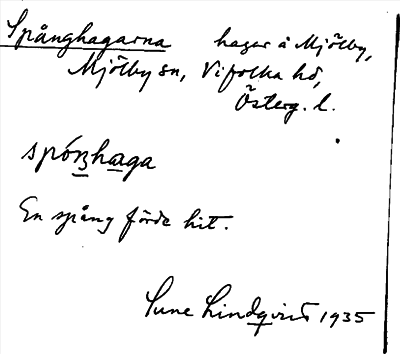 Spånghagarna hagar å Mjölby,
Mjölby sn, Vifolka hd,
Österg. l.
spóŋhaga
En spång förde hit.
Sune Lindqvist 1935